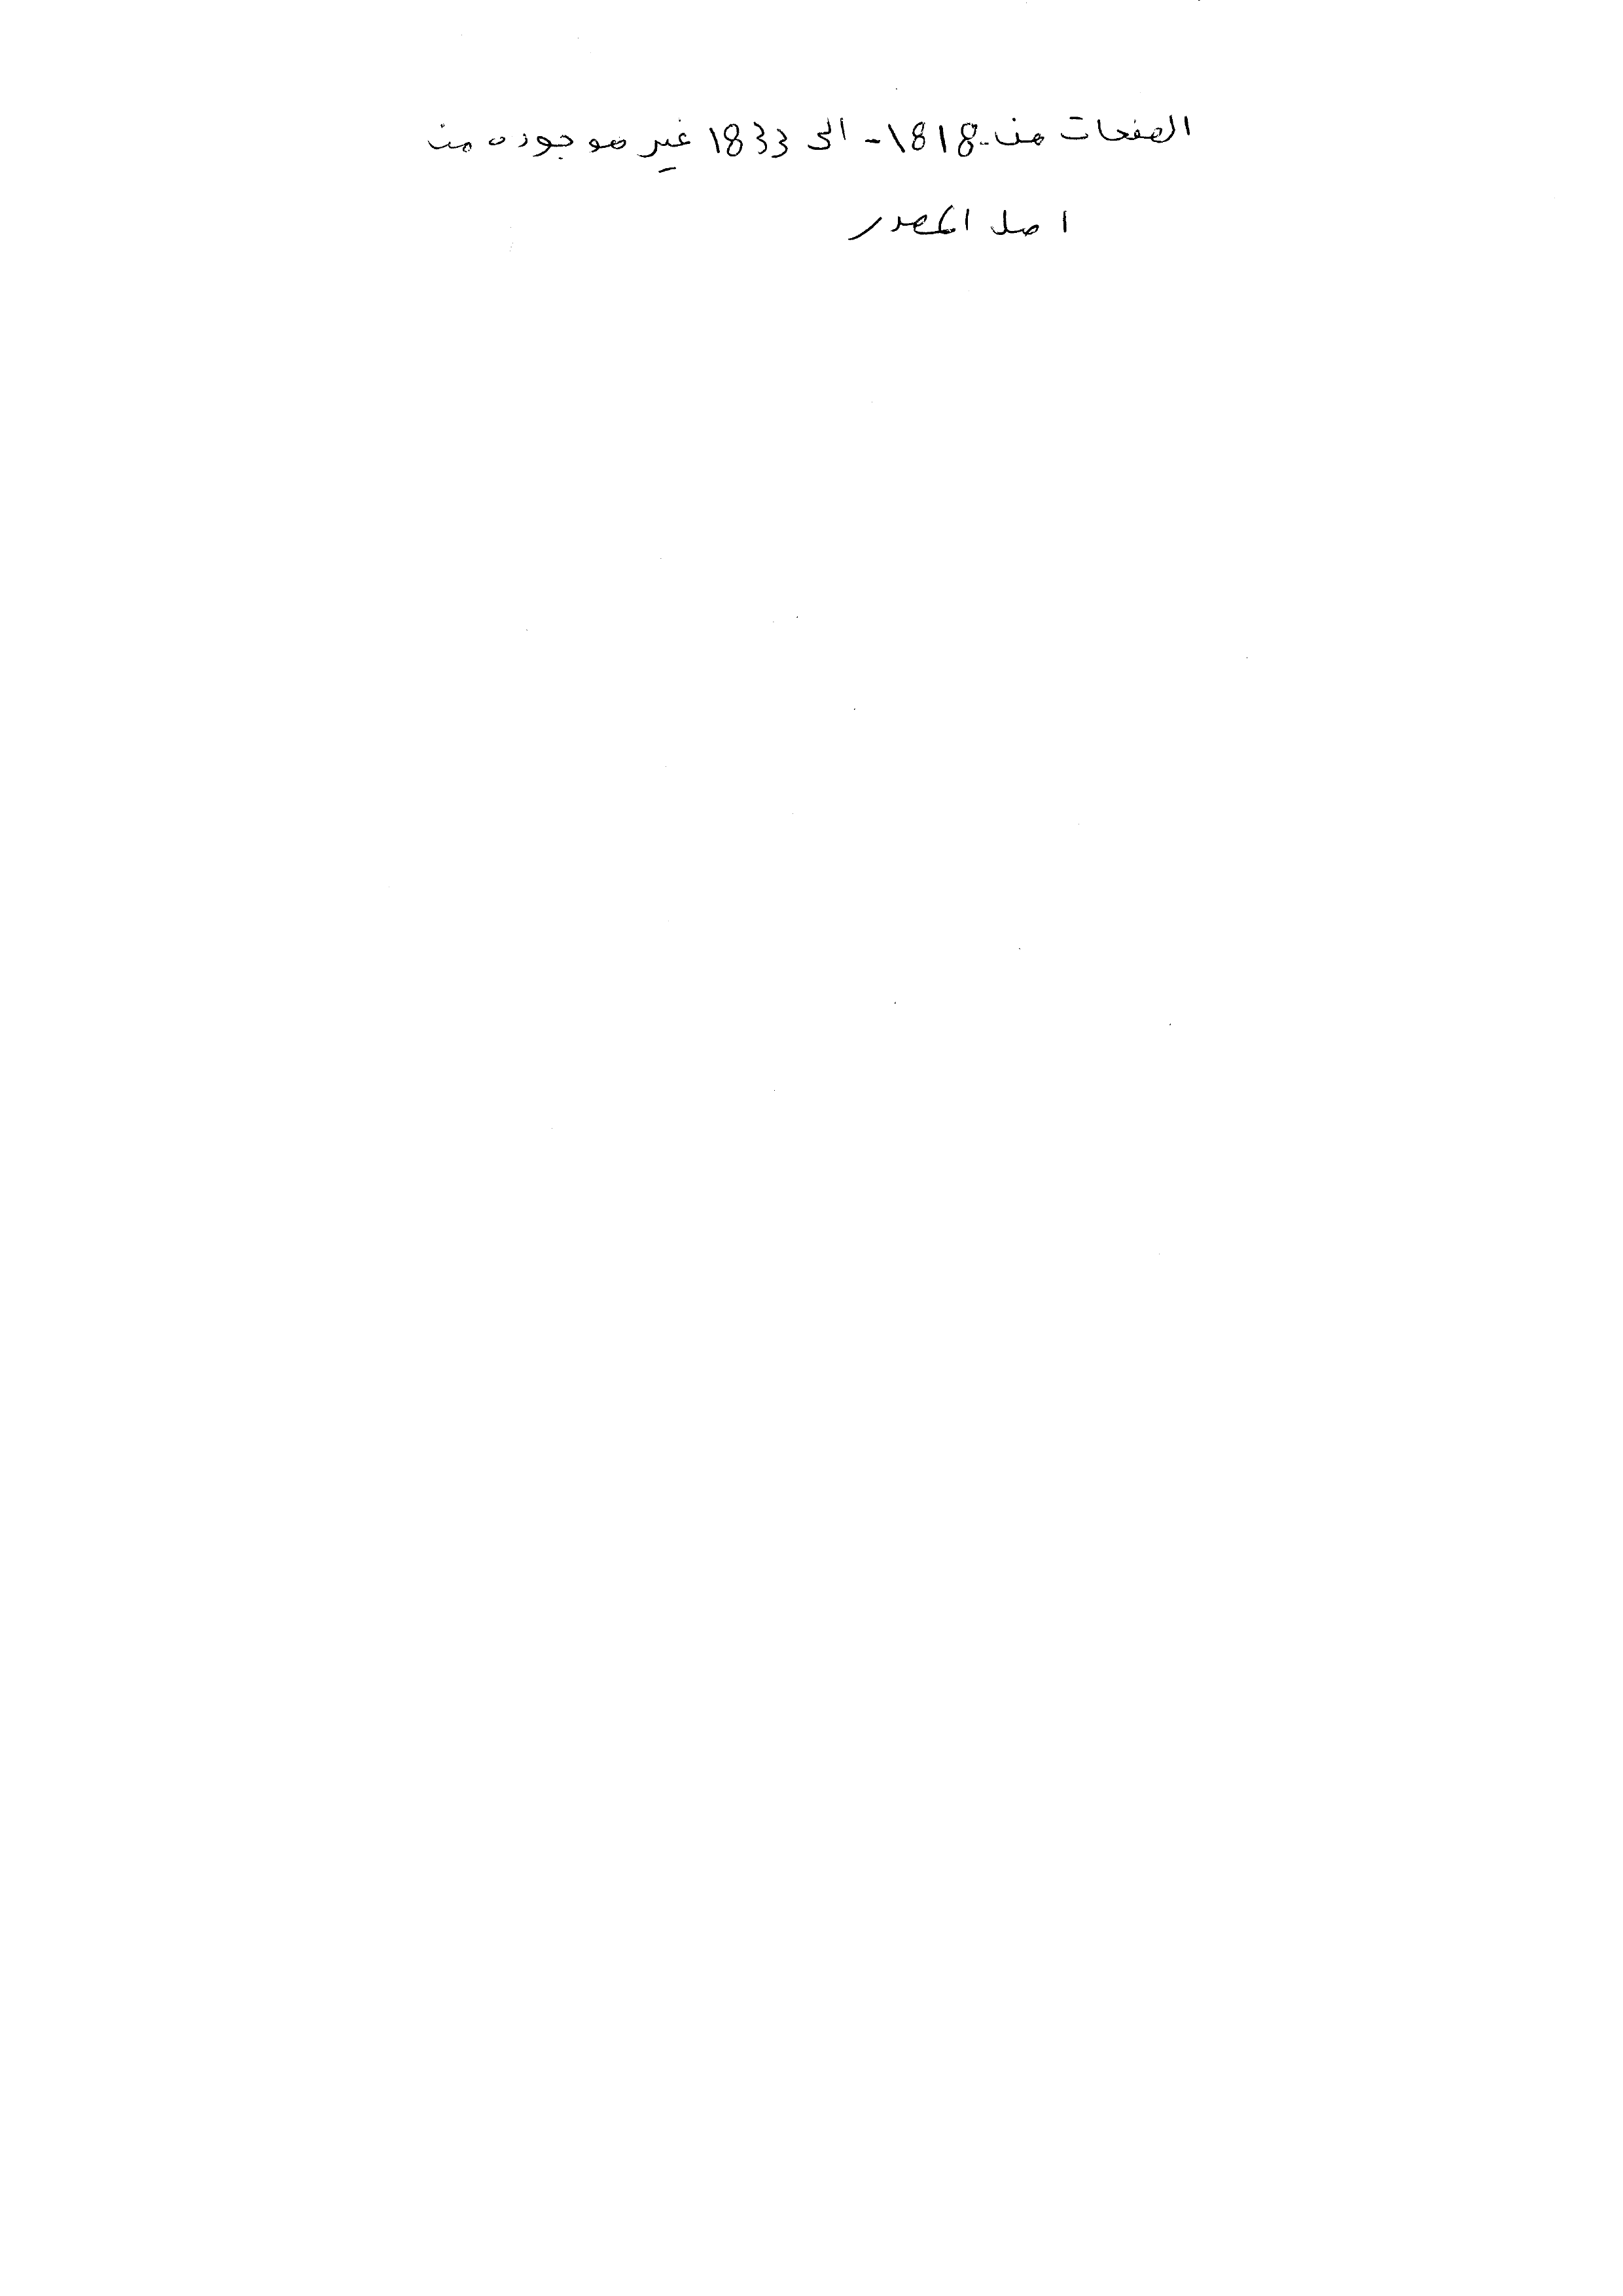 الصفحات من 1818- الى 1833 غير موجوده من
اصل المصدر